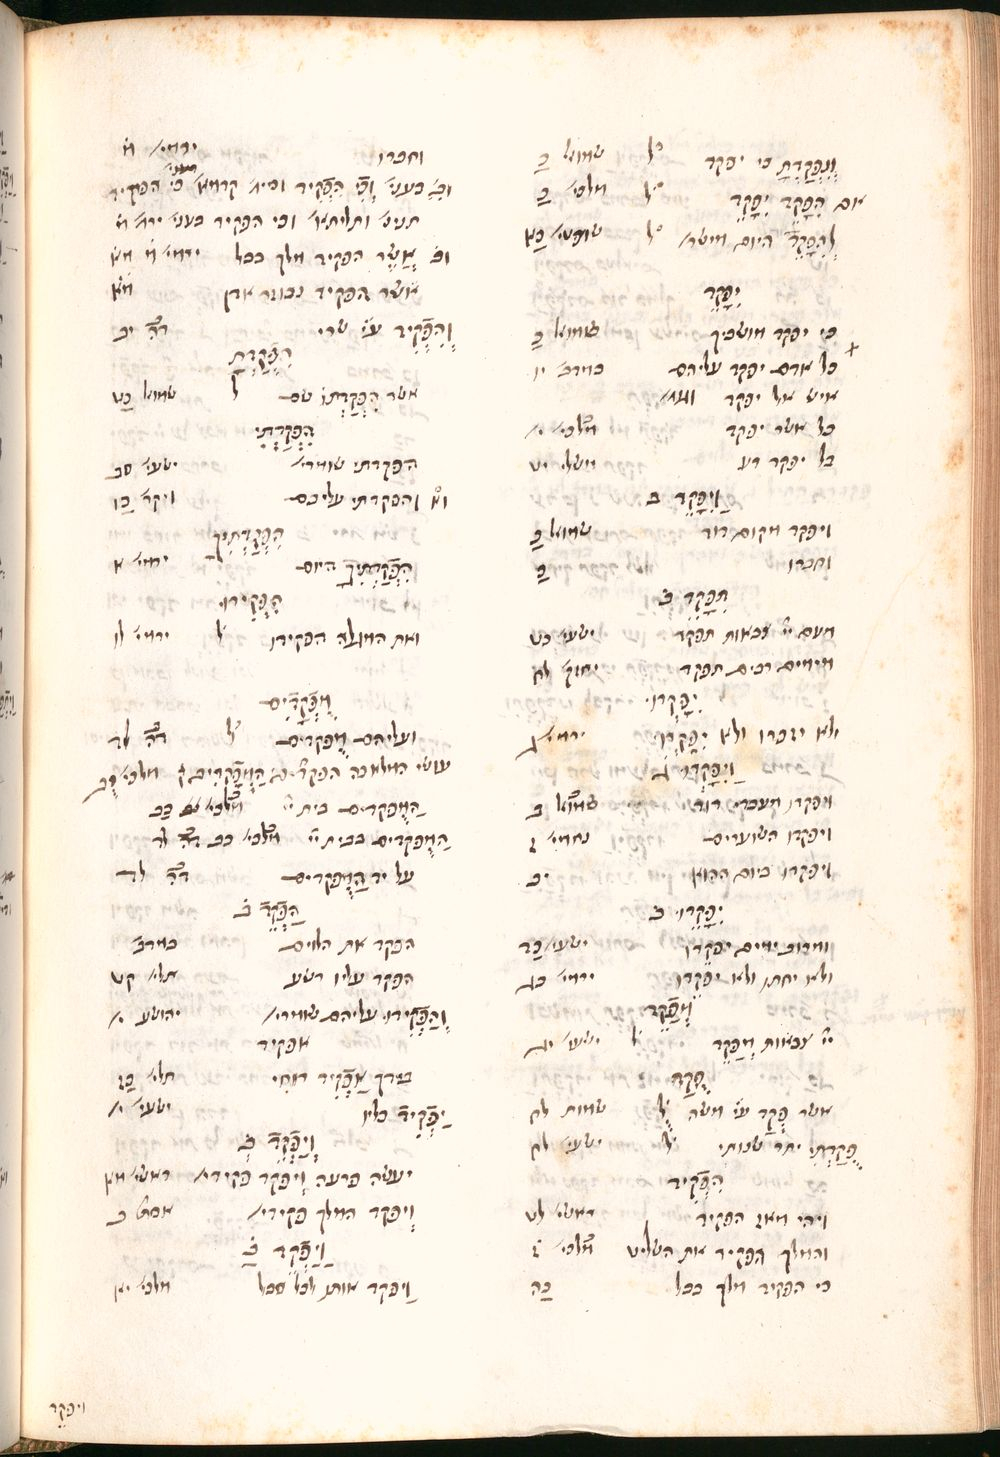 וְנִפְקַדְתָּ כי יפקד ל שמואל כ
אם הִפָּקֵד יִפָּקֵד ל מלכי כ
לְהִפָּקֵד היום מישר׳ ל שופטי׳ כא
יִפָּקֵד
כי יפקד מושבך שמואל כ
כל אדם יפקד עליהם במדב׳ יו
איש אל יפקד
כל אשר יפקד מלכי׳ י׳
בל יפקד רע משלי יט
וַיִּפָּקֵד ב
ויפקד מקום דוד שמואל כ
וחברו כ
תִּפָּקֵד ב
מעם יי׳ צבאות תפקד ישעי׳ כט
מימים רבים תפקד יחזק׳ לח
יִפָּקְדוּ
ולא יזכרו ולא יִפָּקְדוּ ירמי׳ ג
וַיִּפָּקְדוּ ג
ויפקדו מעבדי דוד שמואל ב
ויפקדו השוערים נחמי׳ ז
ויפקדו ביום ההוא יב
יִפָּקֵדוּ ב
ומרוב ימים יפקדו ישעי׳ כד
ולא יחתו ולא יפקדו ירמי׳ כג
מְפַקֵּד
יי׳ צבאות מְפַקֵּד ל ישעי׳ יג
פֻּקַּד
אשר פֻּקַּד ע״פ משה ל שמות לח
פֻּקַּדְתִּי יתר שנותי ל ישעי׳ לח
הִפְקִיד
ויהי מאז הפקיד ראשי׳ לט
והמלך הפקיד את השליש מלכי׳ ז
כי הפקיד מלך בבל כה
וחברו ירמי׳ מ
תנינ׳ ותלית׳א וכי הפקיד בעני׳ ירמ׳ מ
וב׳ אֲשֶׁר הפקיד מלך בבל ירמי׳ מ מא
אשר הפקיד נבוזר אדן מא
וְהִפְקִיד ע״פ שרי דה יב
הִפְקַדְתָּ
אשר הִפְקַדְתּוֹ שם ל שמואל כט
הִפְקַדְתִּי
הפקדתי שומרי׳ ישעי׳ סב
והפקדתי עליכם ויקר׳ כו
הִפְקַדְתִּיךָ
הִפְקַדְתִּיךָ היום ירמי׳ א
הִפְקִידוּ
ואת המגלה הפקידו ל ירמי׳ לו
מֻפְקָדִים
ועליהם מֻפקדים ל דה לד
הַמֻפקדים בית יי׳ מלכי׳ כב
הַמֻפקדים בבית יי׳ מלכי׳ כב דה לד
על יד הַמֻפקדים דה לד
הַפְקֵד ב
הפקד את הלוים במדב׳
הפקד עליו רשע תלי׳ קט
וְהַפְקִידוּ עליהם שומרי׳ יהושע י׳
אפקיד
בידך אַפְקִיד רוחי תלי׳
יַפְקִיד כליו ישעי׳ י׳
וְיַפְקֵד ב
יעשה פרעה וְיפקד פקידי׳ ראשי׳ מא
וְיפקד המלך פקידי׳ אסת׳ ב
וַיַּפְקֵד ב
וַיפקד אותו לכל סבל מלכי׳ יא
ויפקד